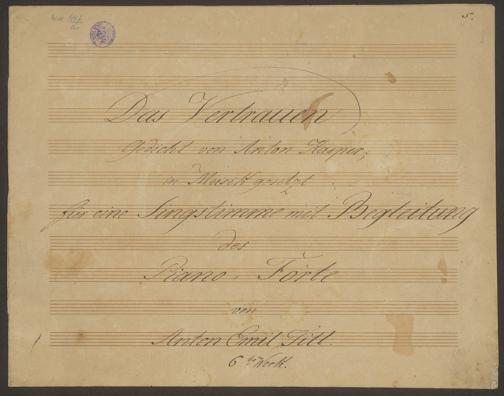 5.
Das Vertrauen
Gedicht von Anton Kasper,
in Musik gesetzt
für eine Singstimme mit Begleitung
des
Piano-Forte
von
Anton Emil Titl.
6tes Werk.